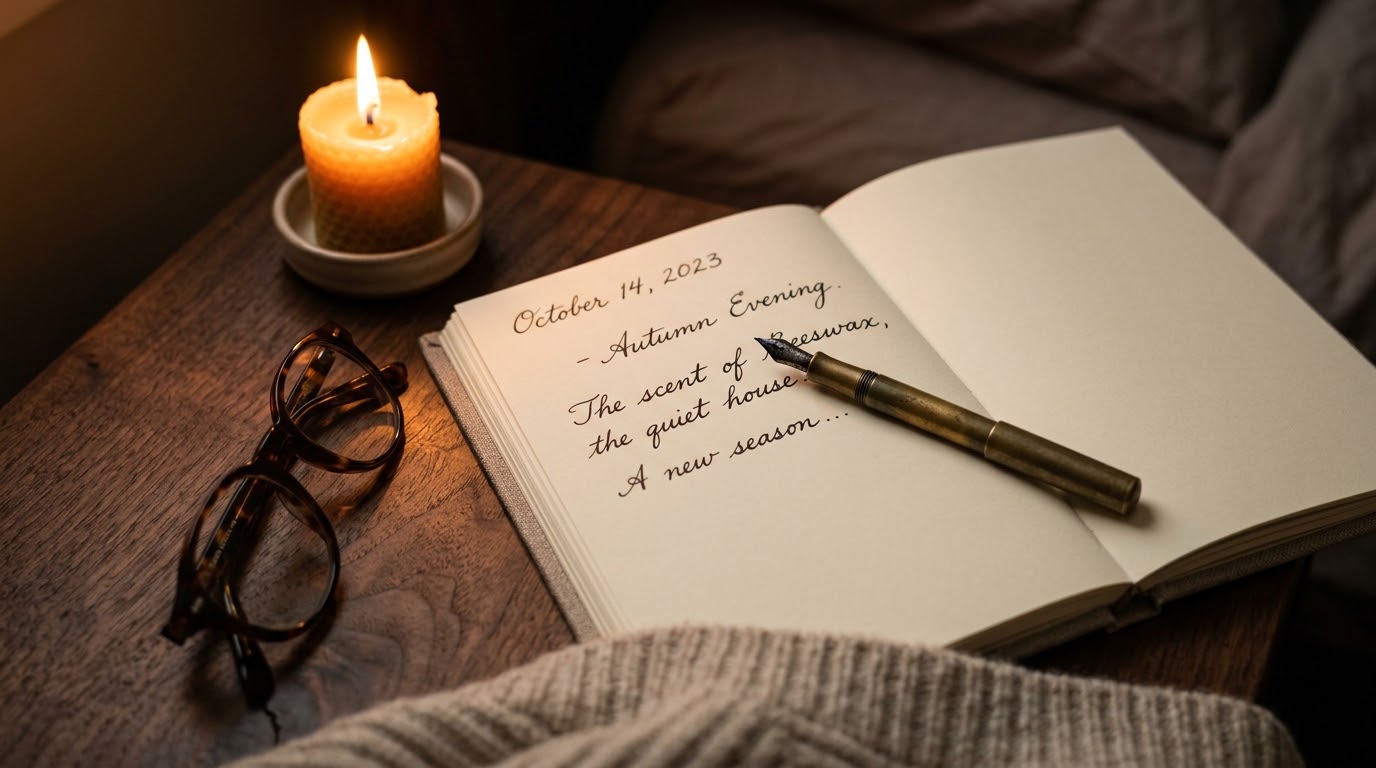 October 14, 2023
- Autumn Evening.
The scent of Beeswax,
the quiet house.
A new season...